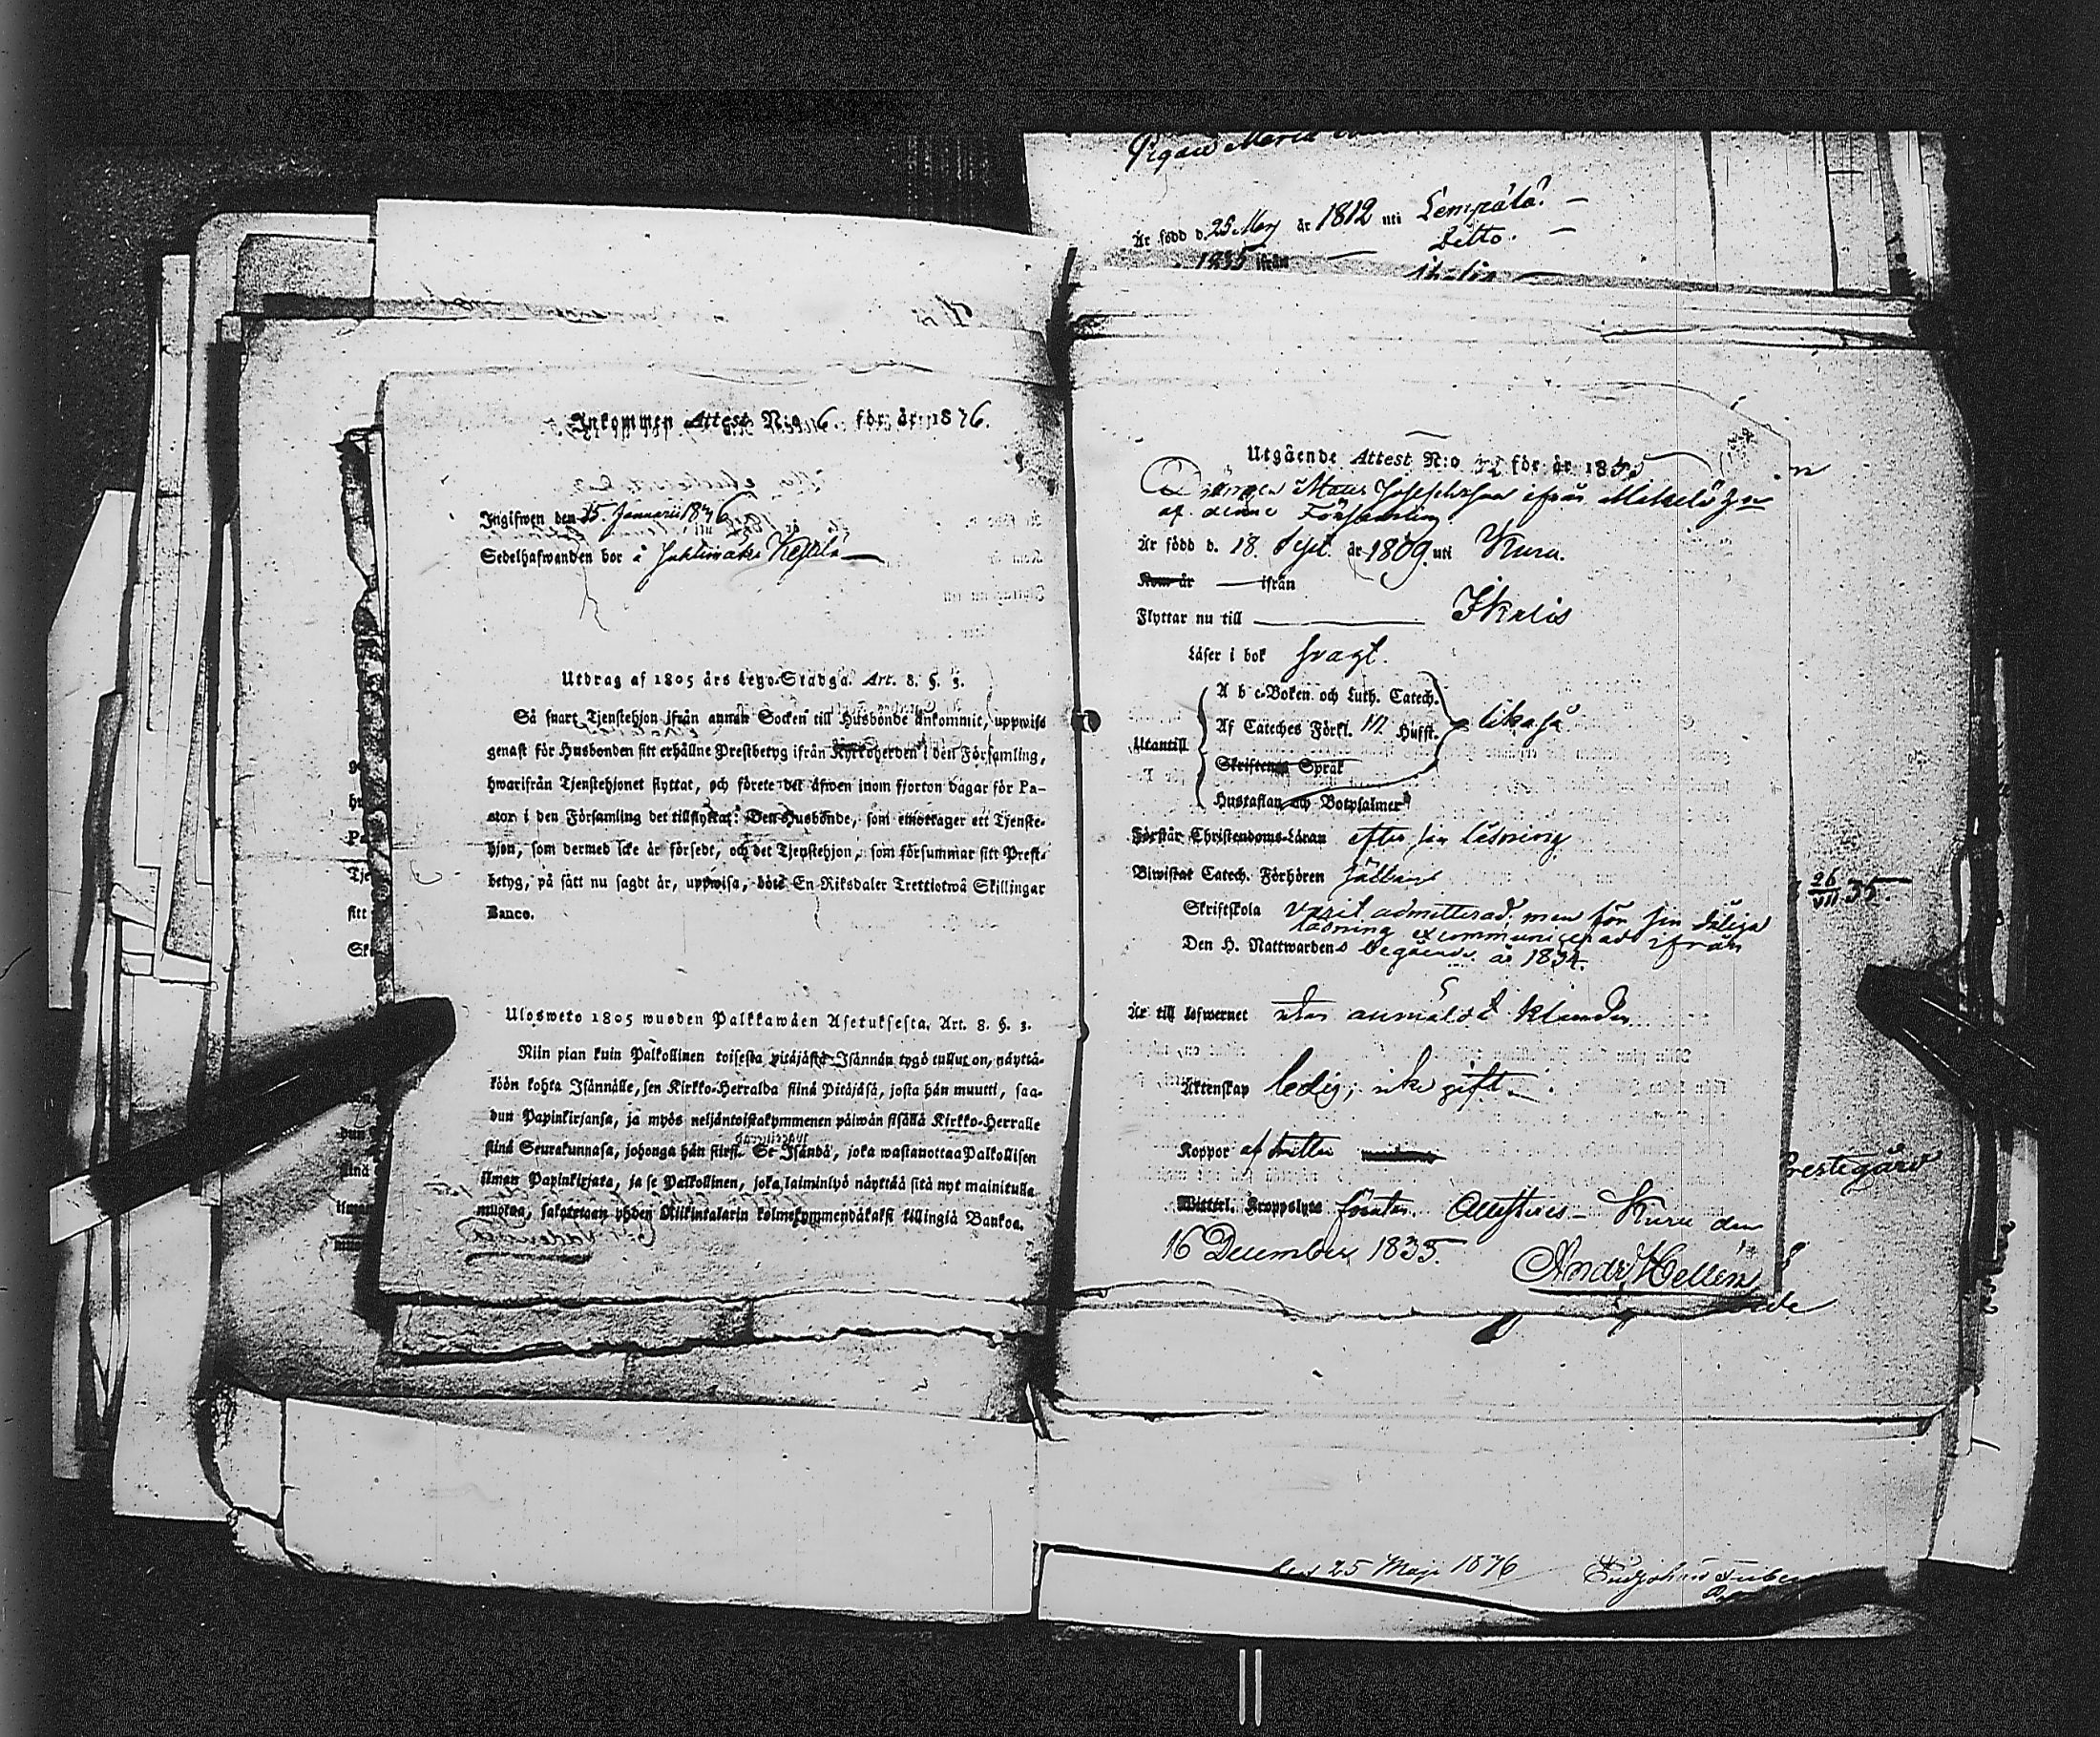 Är född d. 25 Maij år 1812 uti Lempälä. —
Ditto. —
1835 ifrån —
Inkommen Attest N:o 6. för år 1836.
Ingifwen den 15 Januarii 1836
Sedelhafwanden bor å
Utdrag af 1805 års Lego-Stadga. Art. 8. §. 3.
Så snart Tjenstehjon ifrån annan Socken till Husbonde ankommit, uppwise
genast för Husbonden sitt erhållne Prestbetyg ifrån Kyrkoherden i den Församling,
hwarifrån Tjenstehjonet flyttat, och förete det äfwen inom fjorton dagar för Pa-
stor i den Församling det tillflyttat: Den Husbonde, som emottager ett Tjenste-
hjon, som dermed icke är försedt, och det Tjenstehjon, som försummar sitt Prest-
betyg, på sätt nu sagdt är, uppwisa, böte En Riksdaler Trettiotwå Skillingar
Banco.
Ulosweto 1805 wuoden Palkkawäen Asetuksesta. Art. 8. §. 3.
Niin pian kuin Palkollinen toisesta pitäjästä Isännän tygö tullut on, näyttä-
köön kohta Isännälle, sen Kirkko-Herralda siinä Pitäjäsä, josta hän muutti, saa-
dun Papinkirjansa, ja myös neljäntoistakymmenen päiwän sisällä Kirkko-Herralle
siinä Seurakunnasa, johonga hän siirsi. Se Isändä, joka wastanottaa Palkollisen
ilman Papinkirjata, ja se Palkollinen, joka laiminlyö näyttää sitä nyt mainitulla
muotoa, sakotetaan yhden Riikintalarin kolmekymmendäkaksi killingiä Bankoa.
Utgående Attest N:o för år 1835
Drängen Matts Josephsson ifrån
af denne Församling
Är född d. 18 Sept. år 1809. uti Kuru.
Kom år — ifrån
Flyttar nu till — Ikalis
Läser i bok svagt.
Utantill
A b c-Boken och Luth. Catech.
Af Cateches Förkl. Hufst.
likaså
Skriftenes Språk
Hustaflan och Botpsalmer
Förstår Christendoms-Läran efter sin läsning
Biwistat Catech. Förhören sällan
Skriftskola varit admitterad, men för sin dåliga
läsning excommunicerad ifrån
Den H. Nattwardens begående år 1834.
Är till lefwernet utan anmäldt klander
Äktenskap ledig, icke gift.
Koppor
Witterl. Kroppslyte Attesteras — Kuru den
16 December 1835.
Andr. Hellén
26/VII 35.
Prestegård
den 25 Maji 1836